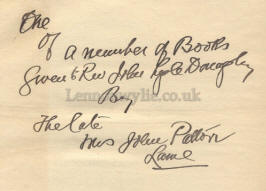 One
of a number of Books
Given to Rev John Donaghy
By
The late
Mrs John Patton
Larne
Lennonwylie.co.uk